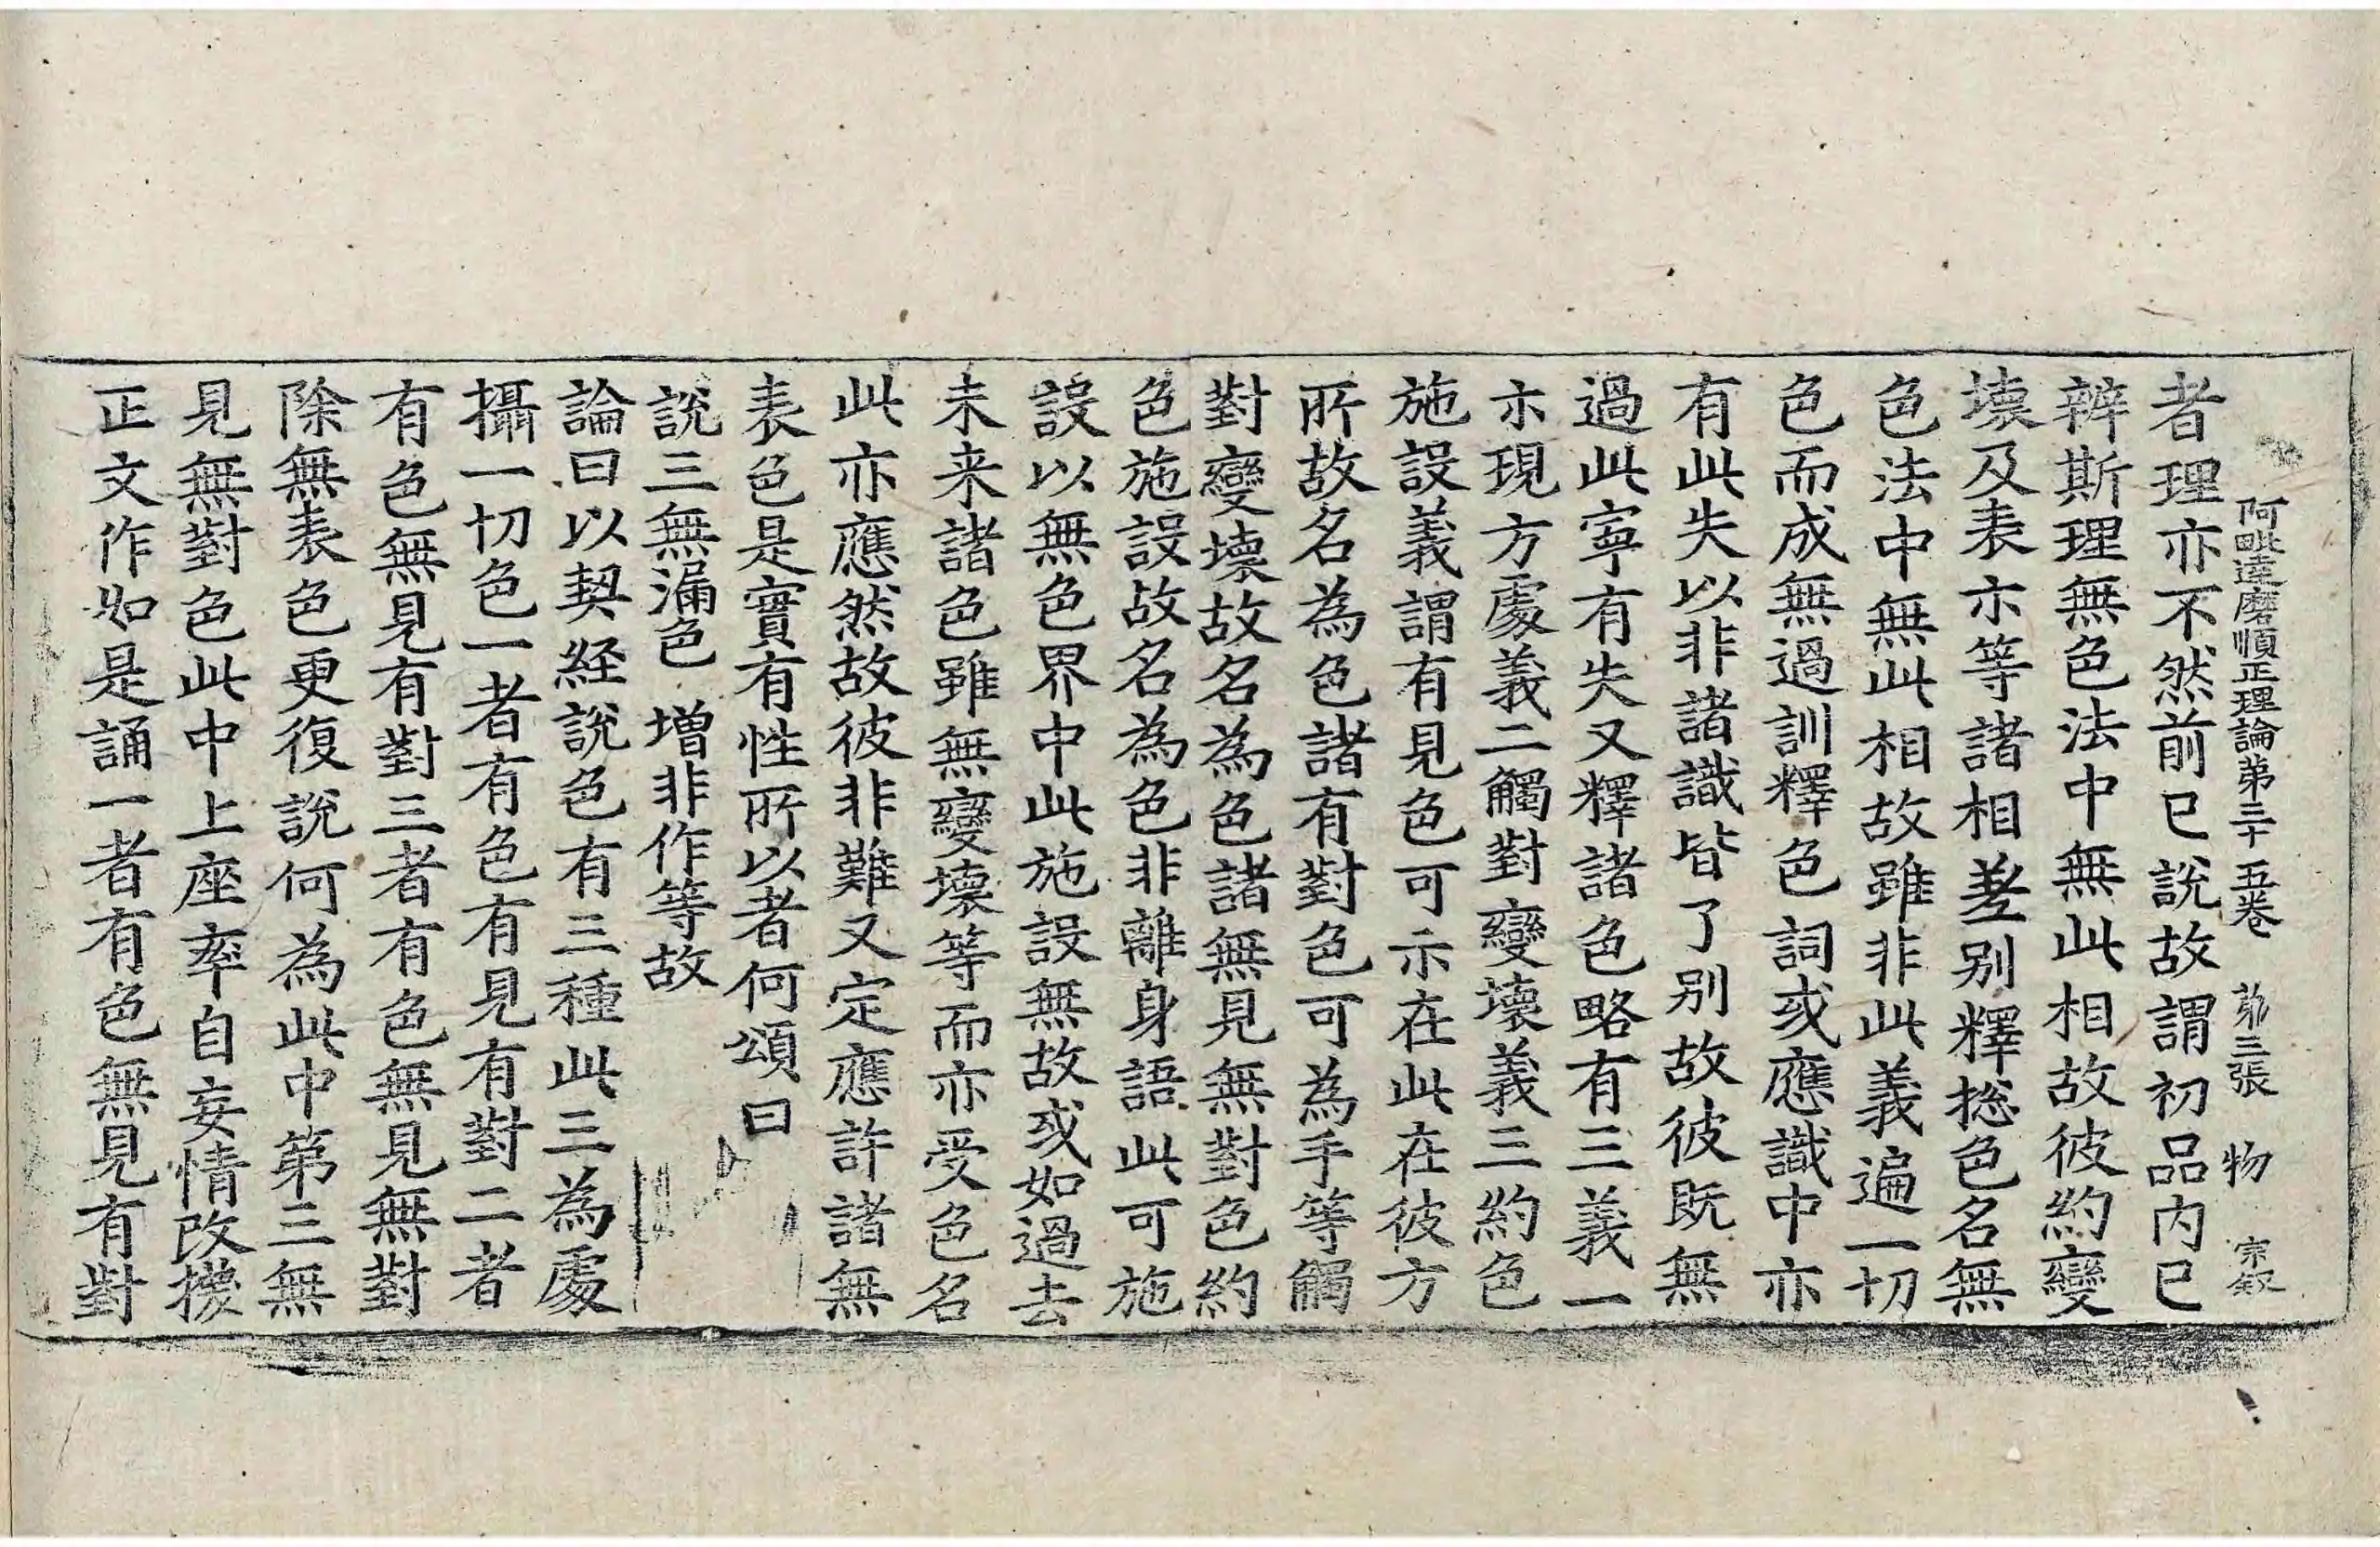 阿毗達磨順正理論第三十五卷 第三張 物 宗叙
者理亦不然前已說故謂初品内已
辯斯理無色法中無此相故彼約變
壞及表示等諸相差别釋揔色名無
色法中無此相故雖非此義遍一切
色而成無過訓釋色詞或應識中亦
有此失以非諸識皆了别故彼既無
過此寧有失又釋諸色略有三義一
示現方處義二觸對變壞義三約色
施設義謂有見色可示在此在彼方
所故名為色諸有對色可為手等觸
對變壞故名為色諸無見無對色約
色施設故名為色非離身語此可施
設以無色界中此施設無故或如過去
未来諸色雖無變壞等而亦受色名
此亦應然故彼非難又定應許諸無
表色是實有性所以者何頌曰
說三無漏色 增非作等故
論曰以契経說色有三種此三為處
攝一切色一者有色有見有對二者
有色無見有對三者有色無見無對
除無表色更復說何為此中第三無
見無對色此中上座率自妄情改換
正文作如是誦一者有色無見有對